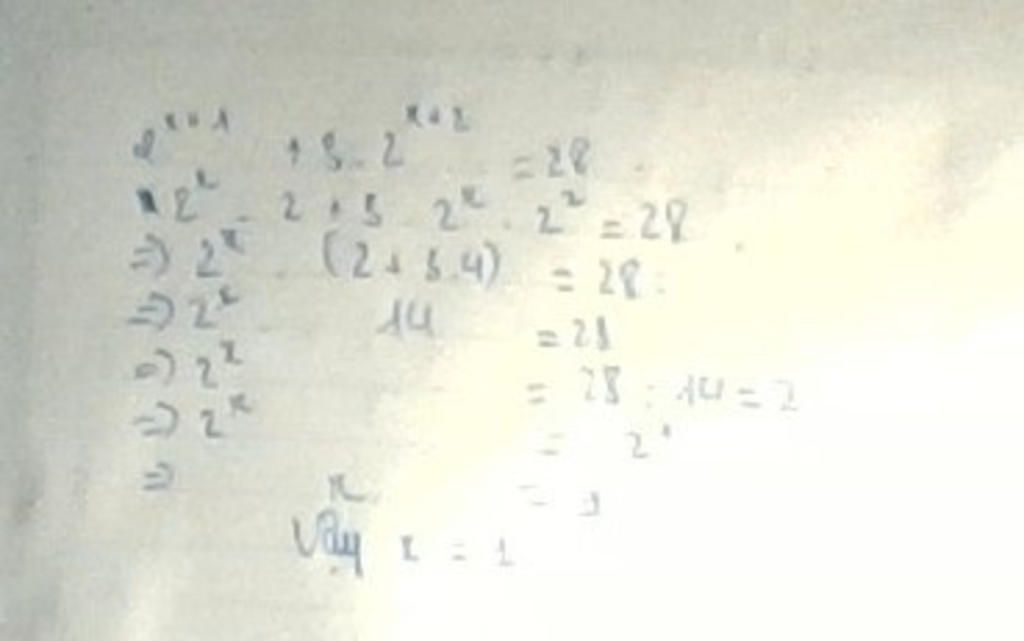 2^{x+1} + 3 . 2^{x+2} = 28
2^x . 2 + 3 . 2^x . 2^2 = 28
=> 2^x . (2 + 3.4) = 28
=> 2^x . 14 = 28
=> 2^x = 28 : 14 = 2
=> 2^x = 2^1
=> x = 1
Vậy x = 1